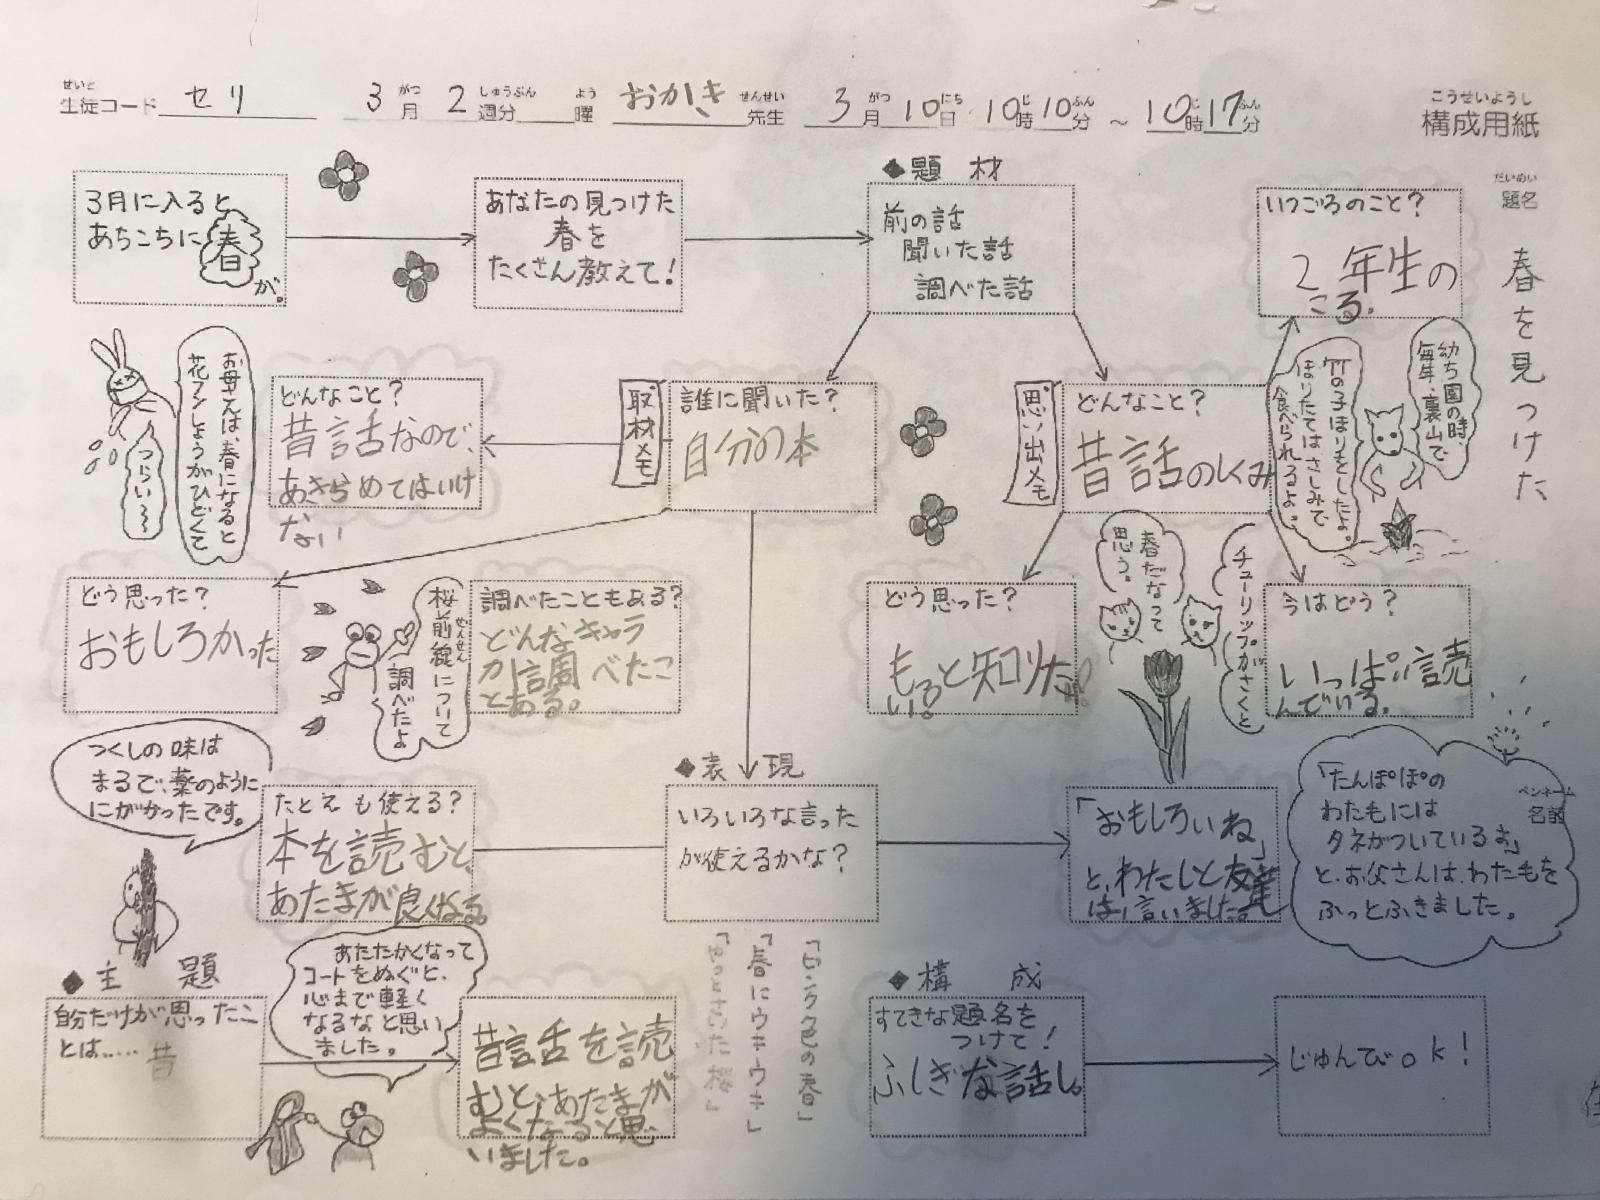 せいと
生徒コード セリ 3月 2週分 曜 おかき 先生 3月10日 10時10分 ～ 10時17分
がつ しゅうぶん よう せんせい がつ にち じ ふん じ ふん
こうせいようし
構成用紙
だいめい
題名
春を見つけた
3月に入ると
あちこちに春
が。
あなたの見つけた
春を
たくさん教えて!
◆題 材
前の話
聞いた話
調べた話
いつごろのこと?
2年生の
ころ.
幼ち園の時、
毎年、裏山で
竹の子ほりをしたよ。
ほりたてはさしみで
食べられるよ。
思い出メモ
どんなこと?
昔話のしくみ
誰に聞いた?
自分の本
取材メモ
どんなこと?
昔話なので、
あきらめてはいけ
ない
お母さんは、春になると
花フンしょうがひどくて
つらい～～
どう思った?
おもしろかった
桜前線について
ぜんせん
調べたよ
調べたこともある?
どんなキャラ
か調べたこ
とある。
どう思った?
もっと知りた
い。
春だなって
思う。
チューリップがさくと
今はどう?
いっぱい読
んでいる。
つくしの味は
まるで、薬のように
にがかったです。
たとえも使える?
本を読むと、
あたまが良くなる。
◆表 現
いろいろな言った
が使えるかな?
「おもしろいね」
と、わたしと友達
は、言いました。
ペンネーム
名前
「たんぽぽの
わたもには
タネがついているよ」
と、お父さんは、わたもを
ふっとふきました。
「ピンク色の春」
「春にウキウキ」
「やっとさいた桜」
◆主 題
自分だけが思ったこ
とは‥‥‥昔
あたたかくなって
コートをぬぐと、
心まで軽く
なるなと思い
ました。
昔話を読
むと、あたまが
よくなると思
いました。
◆構 成
すてきな題名を
つけて!
ふしぎな話し。
じゅんびok!